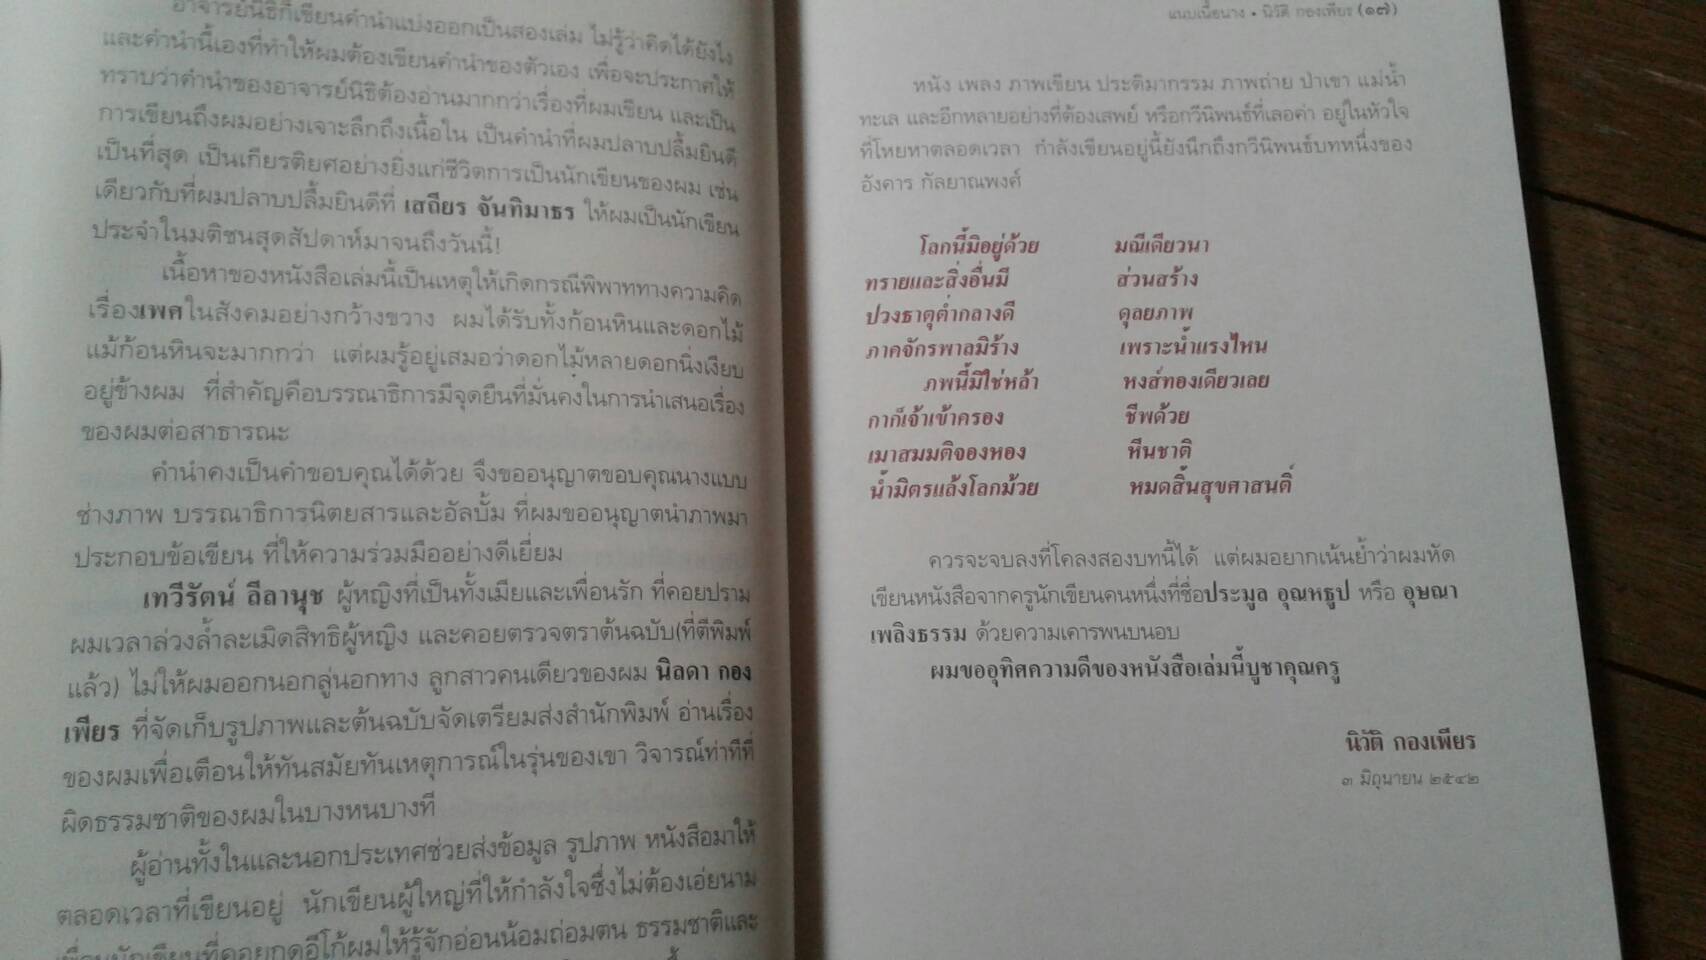 อาจารย์นิธิก็เขียนคำนำแบ่งออกเป็นสองเล่ม ไม่รู้ว่าคิดได้ยังไง
และคำนำนี้เองที่ทำให้ผมต้องเขียนคำนำของตัวเอง เพื่อจะประกาศให้
ทราบว่าคำนำของอาจารย์นิธิต้องอ่านมากกว่าเรื่องที่ผมเขียน และเป็น
การเขียนถึงผมอย่างเจาะลึกถึงเนื้อใน เป็นคำนำที่ผมปลาบปลื้มยินดี
เป็นที่สุด เป็นเกียรติยศอย่างยิ่งแก่ชีวิตการเป็นนักเขียนของผม เช่น
เดียวกับที่ผมปลาบปลื้มยินดีที่ เสถียร จันทิมาธร ให้ผมเป็นนักเขียน
ประจำในมติชนสุดสัปดาห์มาจนถึงวันนี้!
เนื้อหาของหนังสือเล่มนี้เป็นเหตุให้เกิดกรณีพิพาททางความคิด
เรื่องเพศในสังคมอย่างกว้างขวาง ผมได้รับทั้งก้อนหินและดอกไม้
แม้ก้อนหินจะมากกว่า แต่ผมรู้อยู่เสมอว่าดอกไม้หลายดอกนิ่งเงียบ
อยู่ข้างผม ที่สำคัญคือบรรณาธิการมีจุดยืนที่มั่นคงในการนำเสนอเรื่อง
ของผมต่อสาธารณะ
คำนำคงเป็นคำขอบคุณได้ด้วย จึงขออนุญาตขอบคุณนางแบบ
ช่างภาพ บรรณาธิการนิตยสารและอัลบั้ม ที่ผมขออนุญาตนำภาพมา
ประกอบข้อเขียน ที่ให้ความร่วมมืออย่างดีเยี่ยม
เทวีรัตน์ ลีลานุช ผู้หญิงที่เป็นทั้งเมียและเพื่อนรัก ที่คอยปราม
ผมเวลาล่วงล้ำละเมิดสิทธิผู้หญิง และคอยตรวจตราต้นฉบับ(ที่ตีพิมพ์
แล้ว) ไม่ให้ผมออกนอกลู่นอกทาง ลูกสาวคนเดียวของผม นิลดา กอง
เพียร ที่จัดเก็บรูปภาพและต้นฉบับจัดเตรียมส่งสำนักพิมพ์ อ่านเรื่อง
ของผมเพื่อเตือนให้ทันสมัยทันเหตุการณ์ในรุ่นของเขา วิจารณ์ท่าทีที่
ผิดธรรมชาติของผมในบางหนบางที
ผู้อ่านทั้งในและนอกประเทศช่วยส่งข้อมูล รูปภาพ หนังสือมาให้
ตลอดเวลาที่เขียนอยู่ นักเขียนผู้ใหญ่ที่ให้กำลังใจซึ่งไม่ต้องเอ่ยนาม
เพื่อนนักเขียนที่คอยกดอีโก้ผมให้รู้จักอ่อนน้อมถ่อมตน ธรรมชาติและ
แนบเนื้อนาง • นิวัติ กองเพียร (๑๗)
หนัง เพลง ภาพเขียน ประติมากรรม ภาพถ่าย ป่าเขา แม่น้ำ
ทะเล และอีกหลายอย่างที่ต้องเสพย์ หรือกวีนิพนธ์ที่เลอค่า อยู่ในหัวใจ
ที่โหยหาตลอดเวลา กำลังเขียนอยู่นี้ยังนึกถึงกวีนิพนธ์บทหนึ่งของ
อังคาร กัลยาณพงศ์
โลกนี้มิอยู่ด้วย มณีเดียวนา
ทรายและสิ่งอื่นมี ส่วนสร้าง
ปวงธาตุต่ำกลางดี ดุลยภาพ
ภาคจักรพาลมิร้าง เพราะน้ำแรงไหน
ภพนี้มิใช่หล้า หงส์ทองเดียวเลย
กาก็เจ้าเข้าครอง ชีพด้วย
เมาสมมติจองหอง หีนชาติ
น้ำมิตรแล้งโลกม้วย หมดสิ้นสุขศาสนติ์
ควรจะจบลงที่โคลงสองบทนี้ได้ แต่ผมอยากเน้นย้ำว่าผมหัด
เขียนหนังสือจากครูนักเขียนคนหนึ่งที่ชื่อประมูล อุณหธูป หรือ อุษณา
เพลิงธรรม ด้วยความเคารพนบนอบ
ผมขออุทิศความดีของหนังสือเล่มนี้บูชาคุณครู
นิวัติ กองเพียร
๓ มิถุนายน ๒๕๔๒